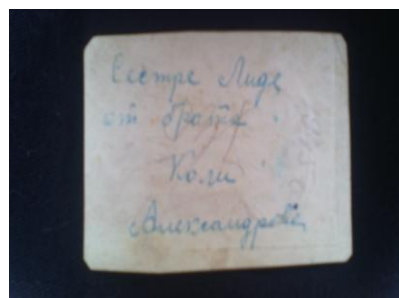 Сестре Лиде
от брата
Коли
Александрова